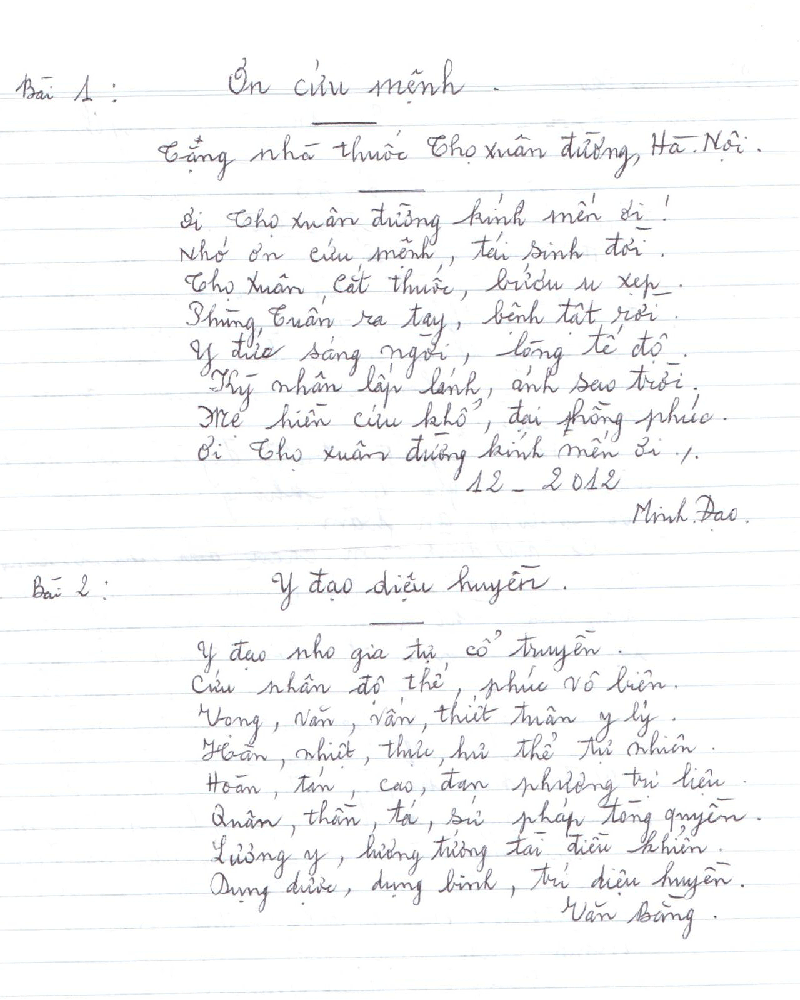 Bài 1 : Ơn cứu mệnh .
Tặng nhà thuốc Thọ xuân đường, Hà Nội .
Ơi Thọ xuân đường kính mến ơi !
Nhớ ơn cứu mệnh, tái sinh đời .
Thọ xuân cắt thuốc, bướu u xẹp .
Phùng Tuấn ra tay, bệnh tật rời .
Y đức sáng ngời, lòng tế độ .
Kỳ nhân lấp lánh, ánh sao trời .
Mẹ hiền cứu khổ, đại hồng phúc .
Ơi Thọ xuân đường kính mến ơi ./.
12 - 2012
Minh Đạo .
Bài 2 : Y đạo diệu huyền .
Y đạo nho gia tự cổ truyền .
Cứu nhân độ thế, phúc vô biên .
Vọng, văn, vấn, thiết tuân y lý .
Hàn, nhiệt, thực, hư thể tự nhiên .
Hoàn, tán, cao, đan phương trị liệu .
Quân, thần, tá, sứ pháp tòng quyền .
Lương y, lương tướng tài điều khiển .
Dụng dược, dụng binh, trí diệu huyền .
Văn Bằng .